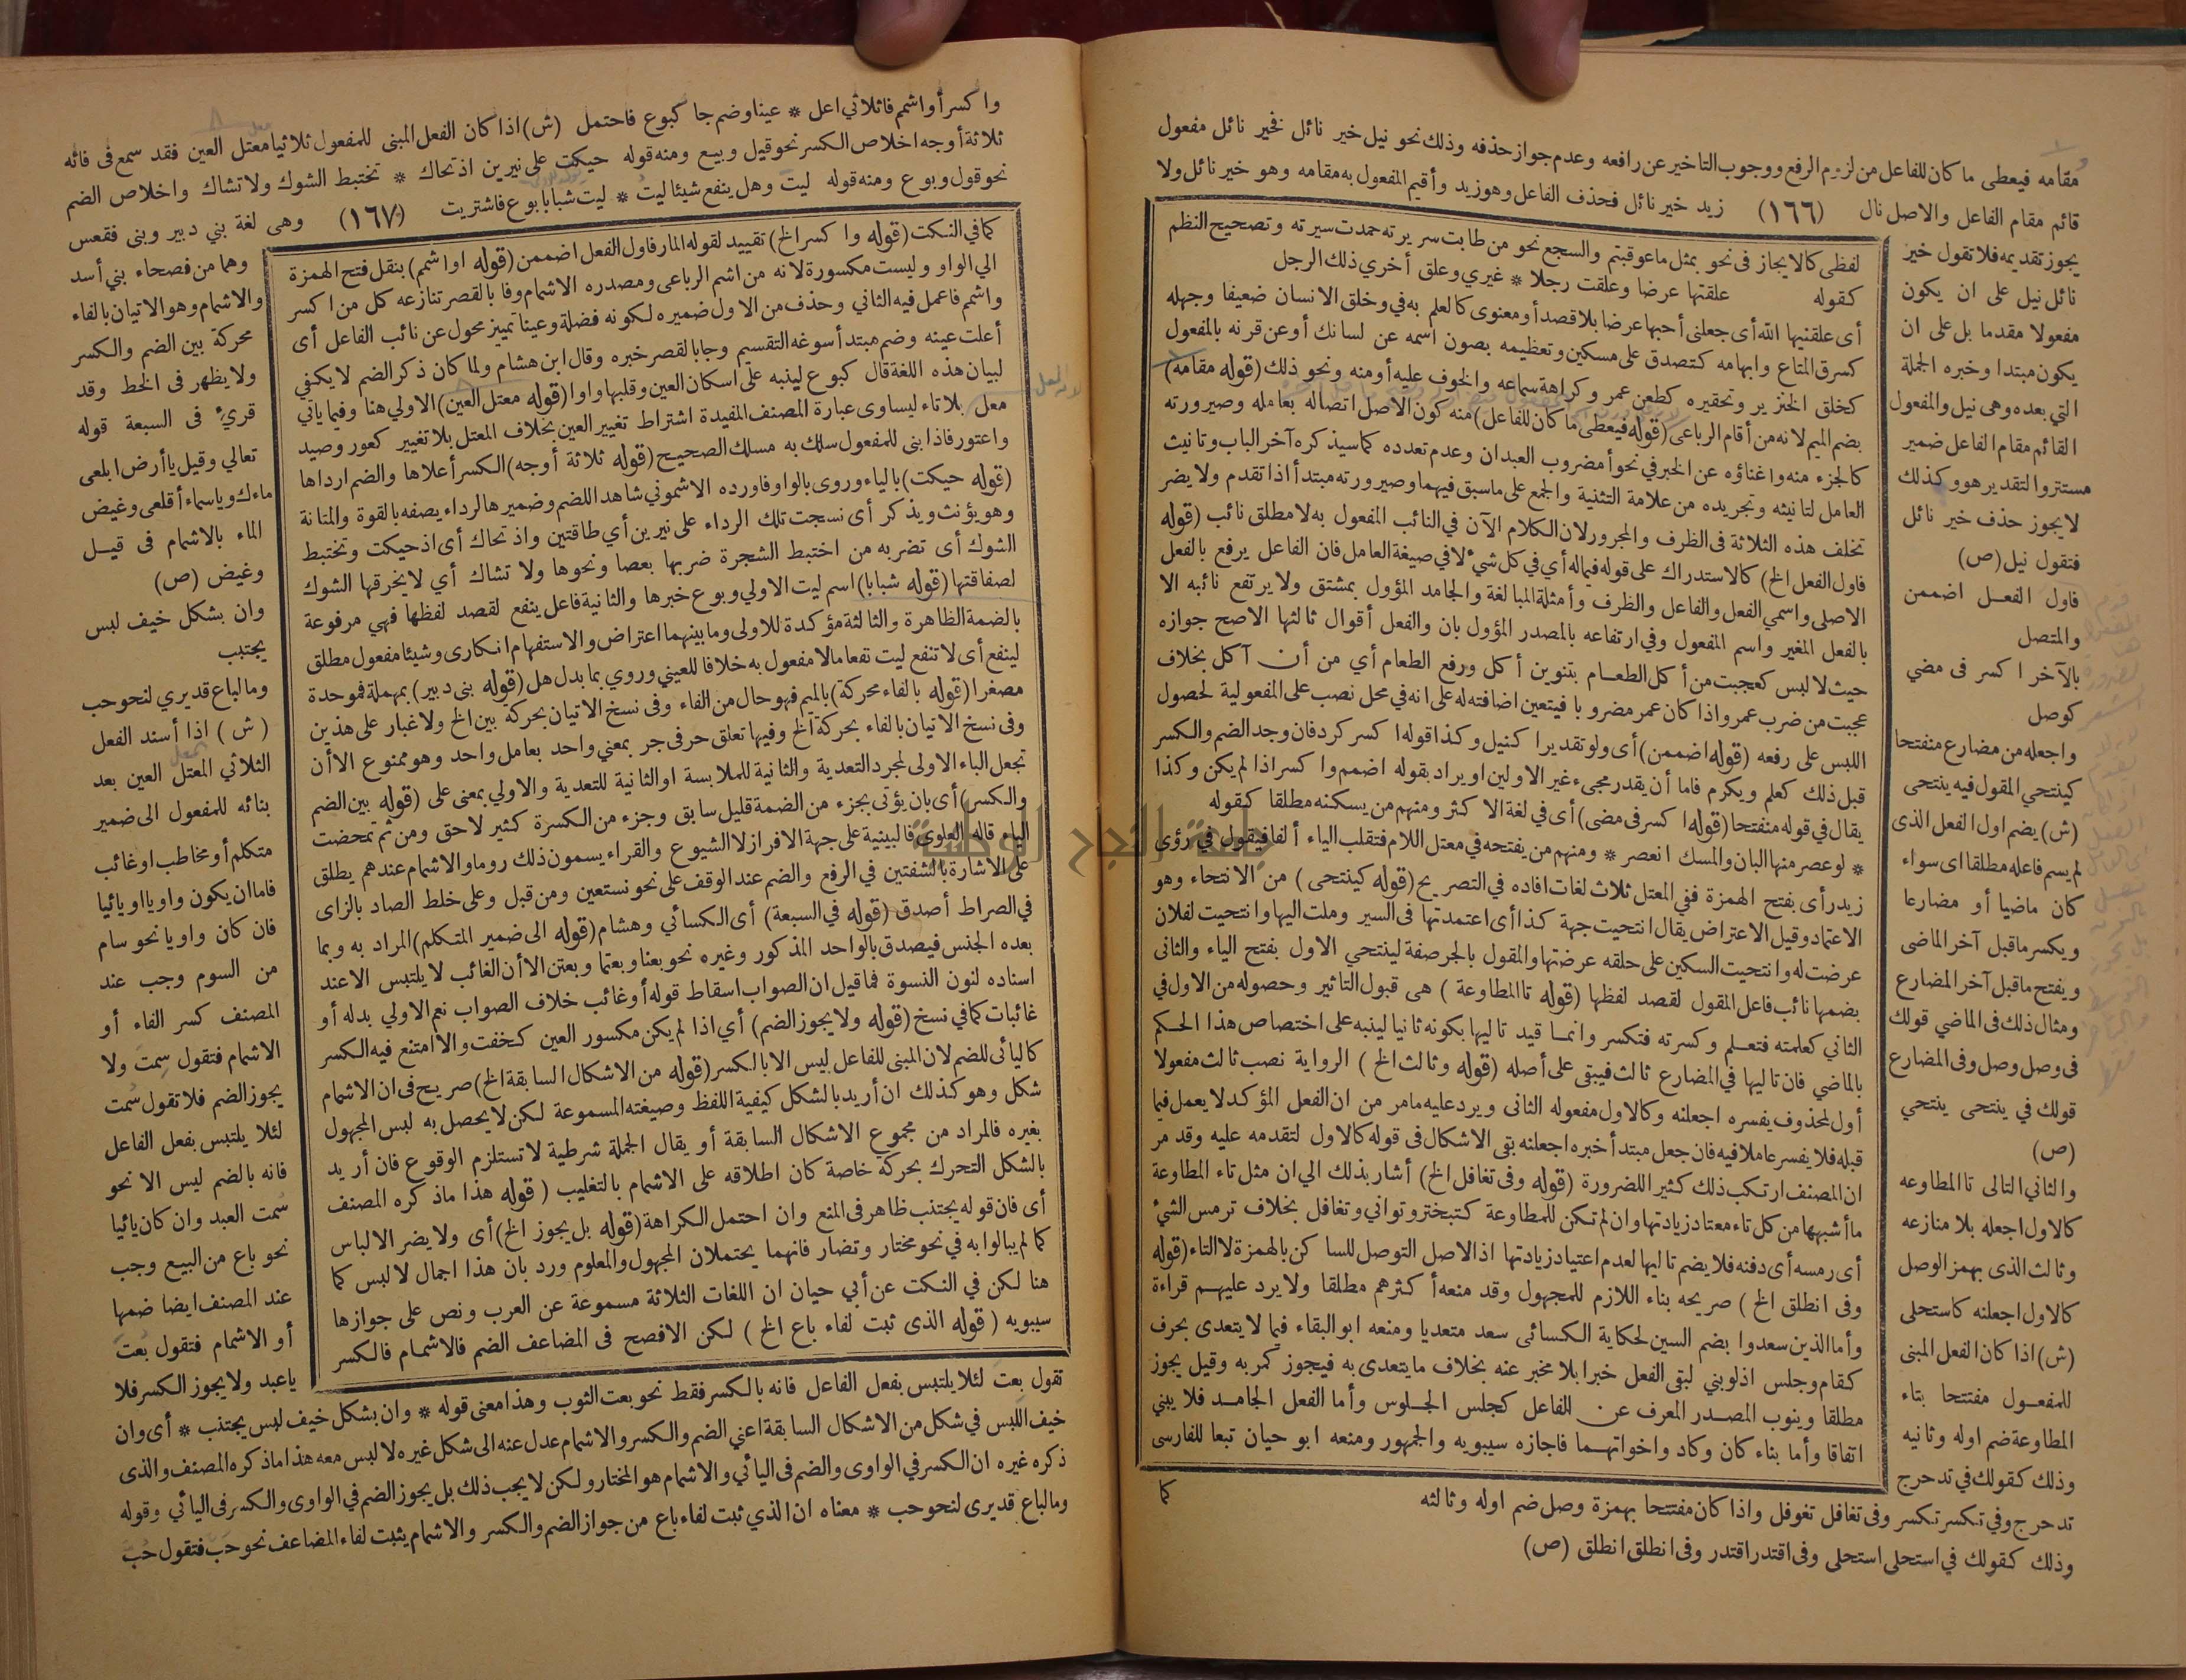 مقامه فيعطى ما كان للفاعل من لزوم الرفع ووجوب التاخير عن رافعه وعدم جواز حذفه وذلك نحو نيل خير نائل فخير نائل مفعول
قائم مقام الفاعل والاصل نال (١٦٦) زيد خير نائل فحذف الفاعل وهو زيد وأقيم المفعول به مقامه وهو خير نائل ولا
يجوز تقديمه فلا تقول خير
نائل نيل على ان يكون
مفعولا مقدما بل على ان
يكون مبتدا وخبره الجملة
التي بعده وهى نيل والمفعول
القائم مقام الفاعل ضمير
مستتر والتقدير هو وكذلك
لا يجوز حذف خير نائل
فتقول نيل (ص)
فاول الفعل اضممن
والمتصل
بالآخر اكسر فى مضي
كوصل
واجعله من مضارع منفتحا
كينتحي المقول فيه ينتحى
(ش) يضم اول الفعل الذى
لم يسم فاعله مطلقا اى سواء
كان ماضيا أو مضارعا
ويكسر ماقبل آخر الماضى
ويفتح ماقبل آخر المضارع
ومثال ذلك فى الماضي قولك
فى وصل وصل وفى المضارع
قولك في ينتحى ينتحي
(ص)
والثاني التالى تا المطاوعه
كالاول اجعله بلا منازعه
وثالث الذى بهمز الوصل
كالاول اجعلنه كاستحلى
(ش) اذا كان الفعل المبنى
للمفعول مفتتحا بتاء
المطاوعة ضم اوله وثانيه
وذلك كقولك في تدحرج
تدحرج وفي تكسر تكسر وفى تغافل تغوفل واذا كان مفتتحا بهمزة وصل ضم اوله وثالثه
وذلك كقولك في استحلى استحلى وفى اقتدر اقتدر وفى انطلق انطلق (ص)
لفظى كالايجاز فى نحو بمثل ما عوقبتم والسجع نحو من طابت سريرته حمدت سيرته وتصحيح النظم
كقوله علقتها عرضا وعلقت رجلا * غيري وعلق أخري ذلك الرجل
أى علقنيها الله أى جعلنى أحبها عرضا بلا قصد أو معنوى كالعلم به في وخلق الانسان ضعيفا وجهله
كسرق المتاع وابهامه كتصدق على مسكين وتعظيمه بصون اسمه عن لسانك أو عن قرنه بالمفعول
كخلق الخنزير وتحقيره كطعن عمر وكراهة سماعه والخوف عليه أو منه ونحو ذلك (قوله مقامه)
بضم الميم لانه من أقام الرباعى (قوله فيعطى ما كان للفاعل) منه كون الاصل اتصاله بعامله وصيرورته
كالجزء منه واغناؤه عن الخبر في نحو أمضروب العبدان وعدم تعدده كما سيذكره آخر الباب وتانيث
العامل لتانيثه وتجريده من علامة التثنية والجمع على ماسبق فيهما وصيرورته مبتدأ اذا تقدم ولا يضر
تخلف هذه الثلاثة فى الظرف والمجرور لان الكلام الآن في النائب المفعول به لا مطلق نائب (قوله
فاول الفعل الخ) كالاستدراك على قوله فيما له أي في كل شئ لا في صيغة العامل فان الفاعل يرفع بالفعل
الاصلى واسمي الفعل والفاعل والظرف وأمثلة المبالغة والجامد المؤول بمشتق ولا يرتفع نائبه الا
بالفعل المغير واسم المفعول وفي ارتفاعه بالمصدر المؤول بان والفعل أقوال ثالثها الاصح جوازه
حيث لا لبس كعجبت من أكل الطعام بتنوين أكل ورفع الطعام أي من أن آكل بخلاف
عجبت من ضرب عمرو اذا كان عمر مضروبا فيتعين اضافته له على انه في محل نصب على المفعولية لحصول
اللبس على رفعه (قوله اضممن) أى ولو تقديرا كنيل وكذا قوله اكسر كرد فان وجد الضم والكسر
قبل ذلك كعلم ويكرم فاما أن يقدر مجىء غير الاولين او يراد بقوله اضمم واكسر اذا لم يكن وكذا
يقال في قوله منفتحا (قوله اكسر فى مضى) أى في لغة الاكثر ومنهم من يسكنه مطلقا كقوله
* لو عصر منها البان والمسك انعصر * ومنهم من يفتحه في معتل اللام فتقلب الياء ألفا فيقول في رؤى
زيد رأى بفتح الهمزة ففي المعتل ثلاث لغات افاده في التصريح (قوله كينتحى) من الانتحاء وهو
الاعتماد وقيل الاعتراض يقال انتحيت جهة كذا أى اعتمدتها فى السير وملت اليها وانتحيت لفلان
عرضت له وانتحيت السكين على حلقه عرضتها والمقول بالجر صفة لينتحي الاول بفتح الياء والثانى
بضمها نائب فاعل المقول لقصد لفظها (قوله تا المطاوعة) هى قبول التاثير وحصوله من الاول في
الثاني كعلمته فتعلم وكسرته فتكسر وانما قيد تاليها بكونه ثانيا لينبه على اختصاص هذا الحكم
بالماضي فان تاليها في المضارع ثالث فيبقى على أصله (قوله وثالث الخ) الرواية نصب ثالث مفعولا
أول لمحذوف يفسره اجعلنه وكالاول مفعوله الثانى ويرد عليه مامر من ان الفعل المؤكد لا يعمل فيما
قبله فلا يفسر عاملا فيه فان جعل مبتدأ خبره اجعلنه بقى الاشكال فى قوله كالاول لتقدمه عليه وقد مر
ان المصنف ارتكب ذلك كثير اللضرورة (قوله وفى تغافل الخ) أشار بذلك الي ان مثل تاء المطاوعة
ما أشبهها من كل تاء معتاد زيادتها وان لم تكن للمطاوعة كتبختر وتواني وتغافل بخلاف ترمس الشئ
أى رمسه أى دفنه فلا يضم تاليها لعدم اعتياد زيادتها اذ الاصل التوصل للساكن بالهمزة لا التاء (قوله
وفى انطلق الخ) صريحه بناء اللازم للمجهول وقد منعه أكثرهم مطلقا ولا يرد عليهم قراءة
وأما الذين سعدوا بضم السين لحكاية الكسائى سعد متعديا ومنعه ابو البقاء فيما لا يتعدى بحرف
كقام وجلس اذ لو بني لبقى الفعل خبرا بلا مخبر عنه بخلاف ما يتعدى به فيجوز كمر به وقيل يجوز
مطلقا وينوب المصدر المعرف عن الفاعل كجلس الجلوس وأما الفعل الجامد فلا يبني
اتفاقا وأما بناء كان وكاد واخواتهما فاجازه سيبويه والجمهور ومنعه ابو حيان تبعا للفارسى
كما
واكسر أو اشمم فا ثلاثي اعل * عينا وضم جا كبوع فاحتمل (ش) اذا كان الفعل المبنى للمفعول ثلاثيا معتل العين فقد سمع فى فائه
ثلاثة أوجه اخلاص الكسر نحو قيل وبيع ومنه قوله حيكت على نيرين اذ تحاك * تختبط الشوك ولا تشاك واخلاص الضم
نحو قول وبوع ومنه قوله ليت وهل ينفع شيئا ليت * ليت شبابا بوع فاشتريت (١٦٧) وهى لغة بني دبير وبنى فقعس
وهما من فصحاء بني أسد
والاشمام وهو الاتيان بالفاء
محركة بين الضم والكسر
ولا يظهر فى الخط وقد
قرئ فى السبعة قوله
تعالي وقيل ياأرض ابلعى
ماءك وياسماء أقلعى وغيض
الماء بالاشمام فى قيل
وغيض (ص)
وان بشكل خيف لبس
يجتنب
وما لباع قد يري لنحو حب
(ش) اذا أسند الفعل
الثلاثي المعتل العين بعد
بنائه للمفعول الى ضمير
متكلم أو مخاطب او غائب
فاما ان يكون واويا او يائيا
فان كان واويا نحو سام
من السوم وجب عند
المصنف كسر الفاء أو
الاشمام فتقول سمت ولا
يجوز الضم فلا تقول سُمت
لئلا يلتبس بفعل الفاعل
فانه بالضم ليس الا نحو
سُمت العبد وان كان يائيا
نحو باع من البيع وجب
عند المصنف ايضا ضمها
أو الاشمام فتقول بُعت
ياعبد ولا يجوز الكسر فلا
تقول بعت لئلا يلتبس بفعل الفاعل فانه بالكسر فقط نحو بعت الثوب وهذا معنى قوله * وان بشكل خيف لبس يجتنب * أى وان
خيف اللبس في شكل من الاشكال السابقة اعني الضم والكسر والاشمام عدل عنه الى شكل غيره لا لبس معه هذا ماذكره المصنف والذى
ذكره غيره ان الكسر في الواوى والضم فى اليائي والاشمام هو المختار ولكن لا يجب ذلك بل يجوز الضم في الواوى والكسر فى اليائي وقوله
وما لباع قد يرى لنحو حب * معناه ان الذي ثبت لفاء باع من جواز الضم والكسر والاشمام يثبت لفاء المضاعف نحو حب فتقول حُب
كما في النكت (قوله واكسر الخ) تقييد لقوله المار فاول الفعل اضممن (قوله اواشمم) بنقل فتح الهمزة
الي الواو وليست مكسورة لانه من اشم الرباعى ومصدره الاشمام وفا بالقصر تنازعه كل من اكسر
واشمم فاعمل فيه الثاني وحذف من الاول ضميره لكونه فضلة وعينا تمييز محول عن نائب الفاعل أى
أعلت عينه وضم مبتدأ سوغه التقسيم وجا بالقصر خبره وقال ابن هشام ولما كان ذكر الضم لا يكفي
لبيان هذه اللغة قال كبوع لينبه على اسكان العين وقلبها واوا (قوله معتل العين) الاولي هنا وفيما ياتي
معل بلا تاء ليساوى عبارة المصنف المفيدة اشتراط تغيير العين بخلاف المعتل بلا تغيير كعور وصيد
واعتور فاذا بنى للمفعول سلك به مسلك الصحيح (قوله ثلاثة أوجه) الكسر أعلاها والضم ارداها
(قوله حيكت) بالياء وروى بالواو فاورده الاشموني شاهد اللضم وضميرها للرداء يصفه بالقوة والمتانة
وهو يؤنث ويذكر أى نسجت تلك الرداء على نيرين أي طاقتين واذ تحاك أى اذ حيكت وتختبط
الشوك أى تضربه من اختبط الشجرة ضربها بعصا ونحوها ولا تشاك أي لا يخرقها الشوك
لصفاقتها (قوله شبابا) اسم ليت الاولي وبوع خبرها والثانية فاعل ينفع لقصد لفظها فهي مرفوعة
بالضمة الظاهرة والثالثة مؤكدة للاولى وما بينهما اعتراض والاستفهام انكارى وشيئا مفعول مطلق
لينفع أى لا تنفع ليت نفعا مالا مفعول به خلافا للعيني وروي بما بدل هل (قوله بنى دبير) بمهملة فموحدة
مصغرا (قوله بالفاء محركة) بالميم فهو حال من الفاء وفى نسخ الاتيان بحركة بين الخ ولا غبار على هذين
وفى نسخ الاتيان بالفاء بحركة الخ وفيها تعلق حرفى جر بمعني واحد بعامل واحد وهو ممنوع الا أن
تجعل الباء الاولى لمجرد التعدية والثانية للملابسة او الثانية للتعدية والاولي بمعنى على (قوله بين الضم
والكسر) أى بان يؤتى بجزء من الضمة قليل سابق وجزء من الكسرة كثير لاحق ومن ثم تمحضت
الياء قاله العلوى فالبينية على جهة الافراز لا الشيوع والقراء يسمون ذلك روما والاشمام عندهم يطلق
على الاشارة بالشفتين في الرفع والضم عند الوقف على نحو نستعين ومن قبل وعلى خلط الصاد بالزاى
في الصراط أصدق (قوله في السبعة) أى الكسائي وهشام (قوله الى ضمير المتكلم) المراد به وبما
بعده الجنس فيصدق بالواحد المذكور وغيره نحو بعنا وبعتما وبعتن الا أن الغائب لا يلتبس الا عند
اسناده لنون النسوة فما قيل ان الصواب اسقاط قوله أو غائب خلاف الصواب نعم الاولي بدله أو
غائبات كما في نسخ (قوله ولا يجوز الضم) أي اذا لم يكن مكسور العين كخفت والا امتنع فيه الكسر
كاليائى للضم لان المبنى للفاعل ليس الا بالكسر (قوله من الاشكال السابقة الخ) صريح فى ان الاشمام
شكل وهو كذلك ان أريد بالشكل كيفية اللفظ وصيغته المسموعة لكن لا يحصل به لبس المجهول
بغيره فالمراد من مجموع الاشكال السابقة أو يقال الجملة شرطية لا تستلزم الوقوع فان أريد
بالشكل التحرك بحركة خاصة كان اطلاقه على الاشمام بالتغليب (قوله هذا ماذكره المصنف
أى فان قوله يجتنب ظاهر فى المنع وان احتمل الكراهة (قوله بل يجوز الخ) أى ولا يضر الالباس
كما لم يبالوا به في نحو مختار وتضار فانهما يحتملان المجهول والمعلوم ورد بان هذا اجمال لا لبس كما
هنا لكن في النكت عن أبي حيان ان اللغات الثلاثة مسموعة عن العرب ونص على جوازها
سيبويه (قوله الذى ثبت لفاء باع الخ) لكن الافصح فى المضاعف الضم فالاشمام فالكسر